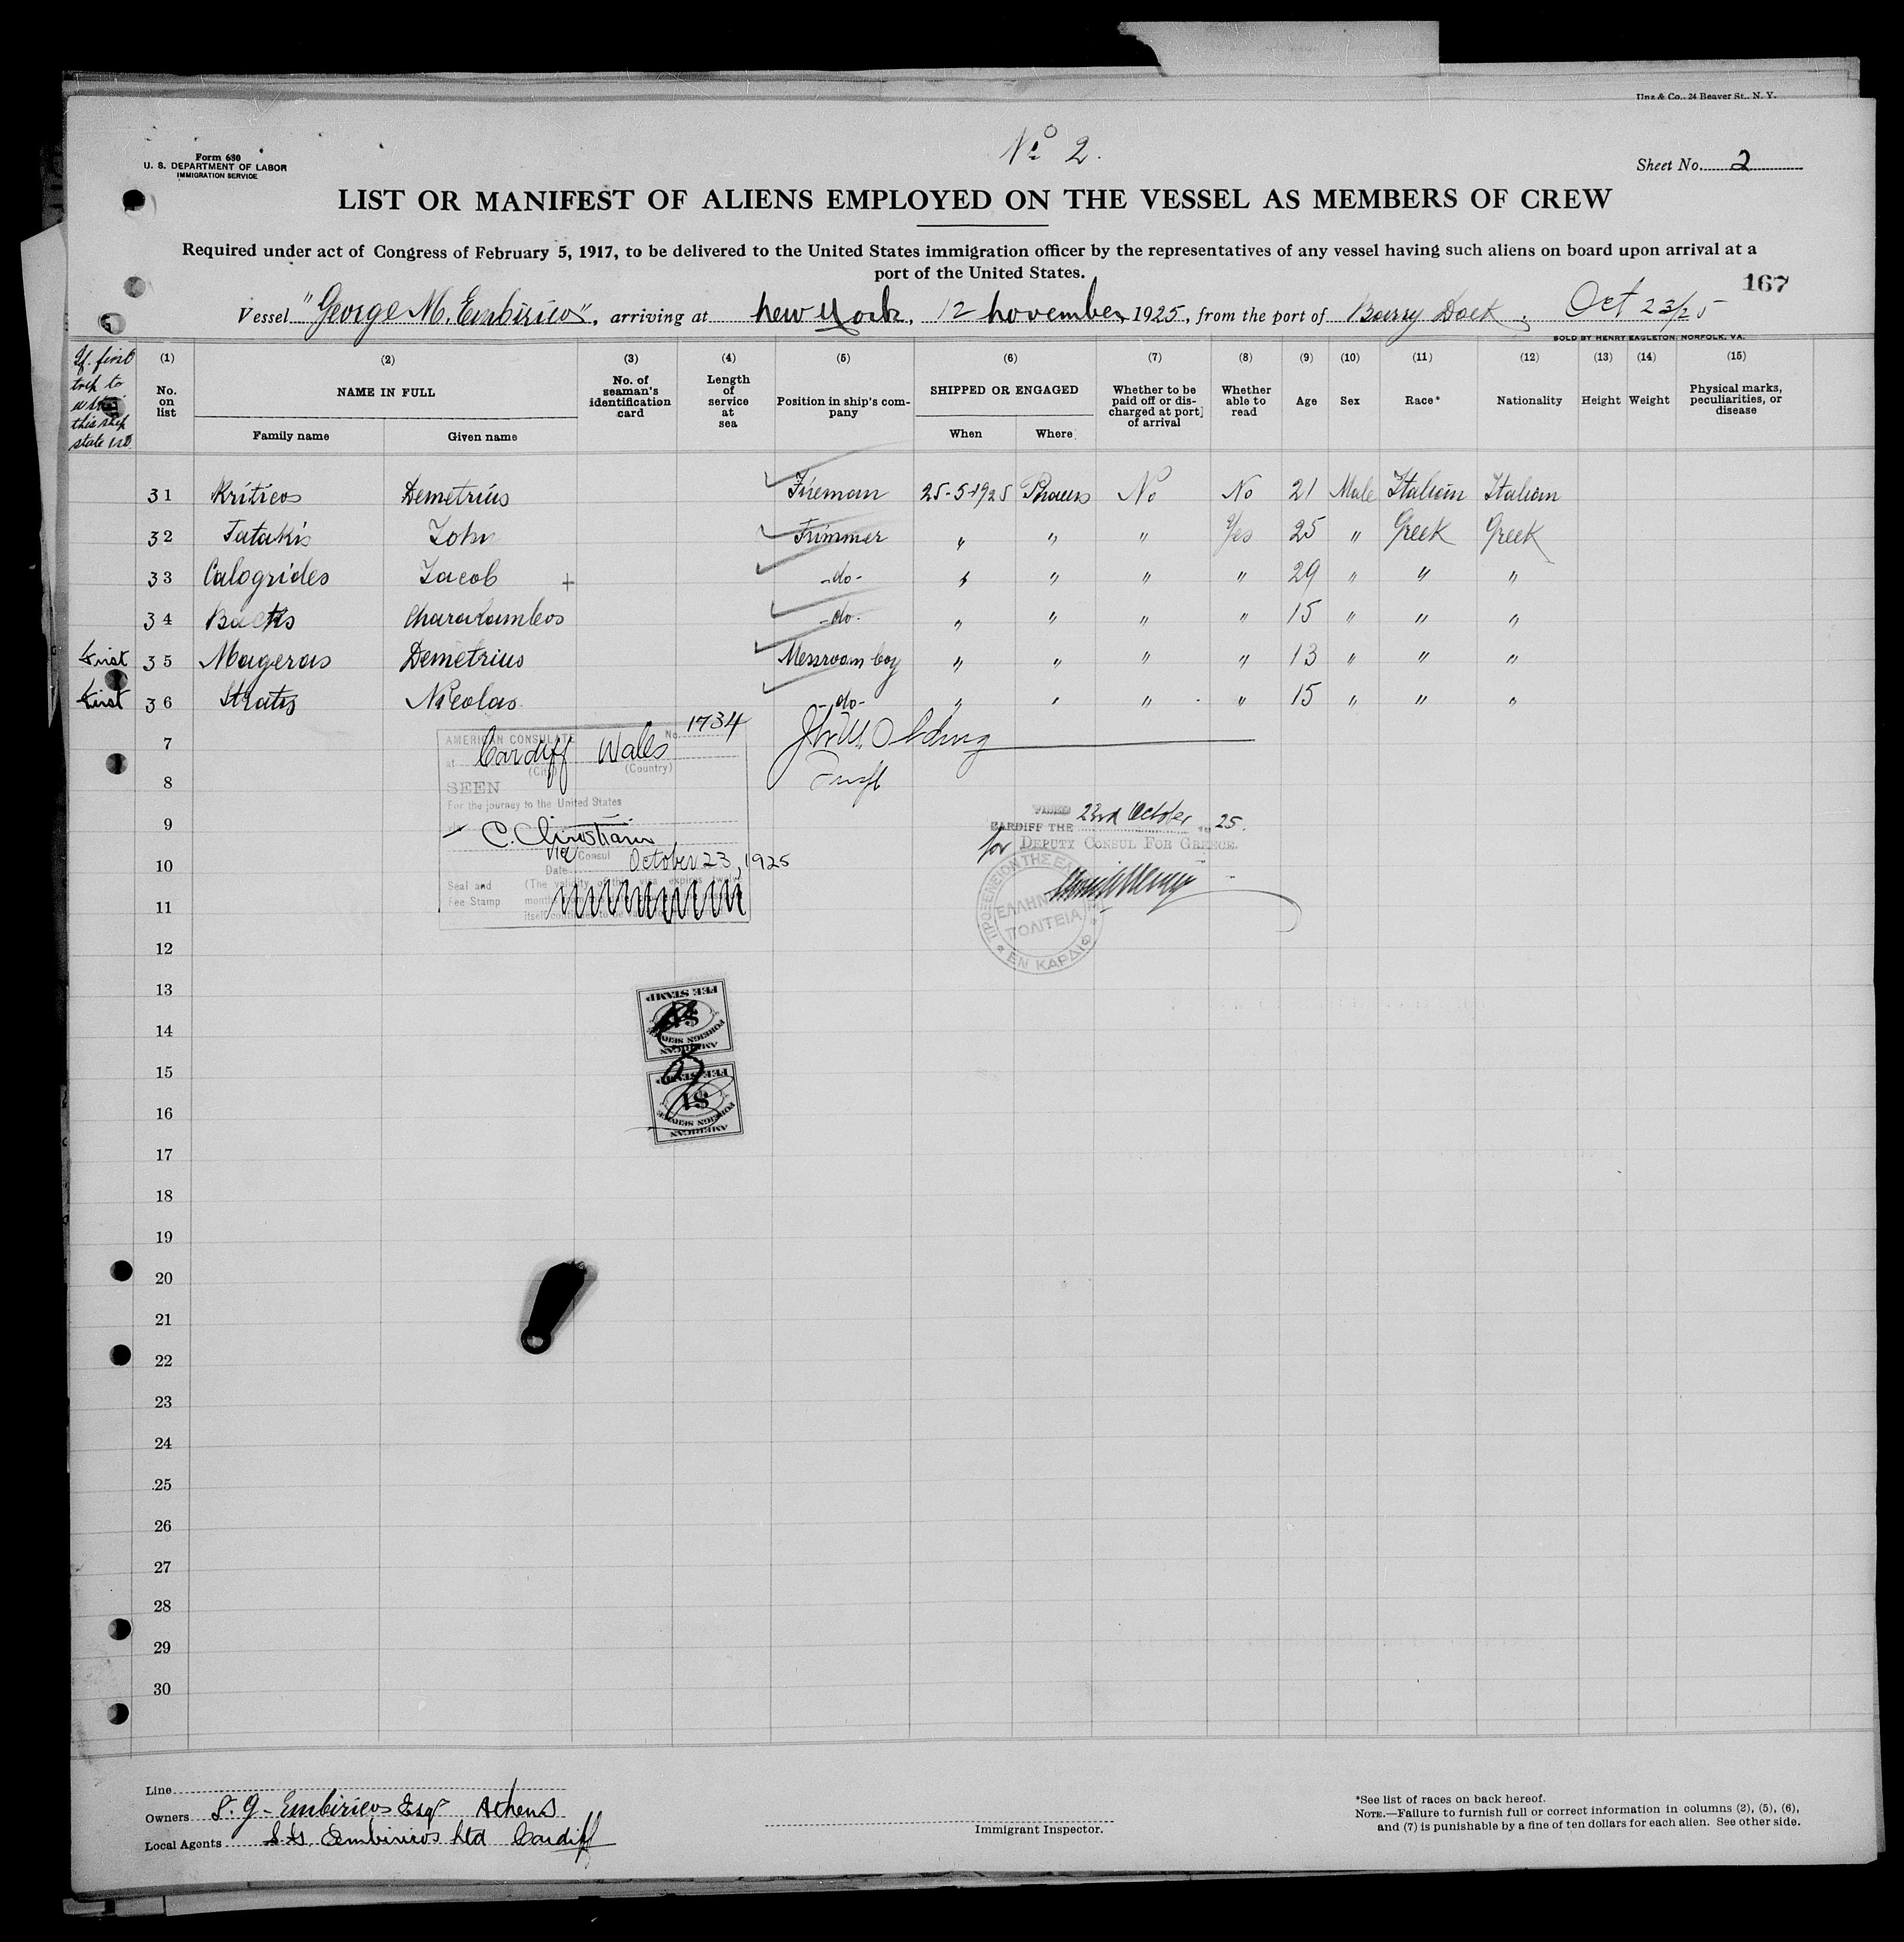 Unz & Co., 24 Beaver St., N. Y.
No 2.
Form 680
U. S. DEPARTMENT OF LABOR
IMMIGRATION SERVICE
Sheet No. 2
LIST OR MANIFEST OF ALIENS EMPLOYED ON THE VESSEL AS MEMBERS OF CREW
Required under act of Congress of February 5, 1917, to be delivered to the United States immigration officer by the representatives of any vessel having such aliens on board upon arrival at a
port of the United States.
167
Vessel "George M. Embiricos", arriving at New York, 12 November, 1925, from the port of Barry Dock. Oct 23/25
SOLD BY HENRY EAGLETON, NORFOLK, VA.
If first trip to this ship state
(1) (2) (3) (4) (5) (6) (7) (8) (9) (10) (11) (12) (13) (14) (15)
No. on list NAME IN FULL No. of seaman's identification card Length of service at sea Position in ship's company SHIPPED OR ENGAGED Whether to be paid off or discharged at port of arrival Whether able to read Age Sex Race* Nationality Height Weight Physical marks, peculiarities, or disease
Family name Given name When Where
31 Kriticos Demetrius Fireman 25-5-1925 No No 21 Male Italian Italian
32 Tatakis John Trimmer " " " Yes 25 " Greek Greek
33 Calogrides Jacob + -do- " " " " 29 " " "
34 Charalambos -do- " " " " 15 " " "
First 35 Mageras Demetrius Messroom boy " " " " 13 " " "
First 36 Stratis Nicolas -do- " " " " 15 " " "
7
8
9
10
11
12
13
14
15
16
17
18
19
20
21
22
23
24
25
26
27
28
29
30
AMERICAN CONSULATE No. 1734
at Cardiff Wales
(City) (Country)
SEEN
For the journey to the United States
C. Christian
Vice Consul
Date October 23, 1925
Seal and Fee Stamp
(The validity of this visa expires twelve
CARDIFF THE 23rd October 1925.
for DEPUTY CONSUL FOR GREECE.
ΠΡΟΞΕΝΕΙΟΝ ΤΗΣ ΕΛΛ
ΕΛΛΗΝ
ΠΟΛΙΤΕΙΑ
ΕΝ ΚΑΡΔΙΦ
AMERICAN FOREIGN SERVICE $1 FEE STAMP
AMERICAN FOREIGN SERVICE $1 FEE STAMP
Line
Owners S. G. Embiricos Esqr Athens
Local Agents S. G. Embiricos Ltd Cardiff
Immigrant Inspector.
*See list of races on back hereof.
NOTE.—Failure to furnish full or correct information in columns (2), (5), (6),
and (7) is punishable by a fine of ten dollars for each alien. See other side.